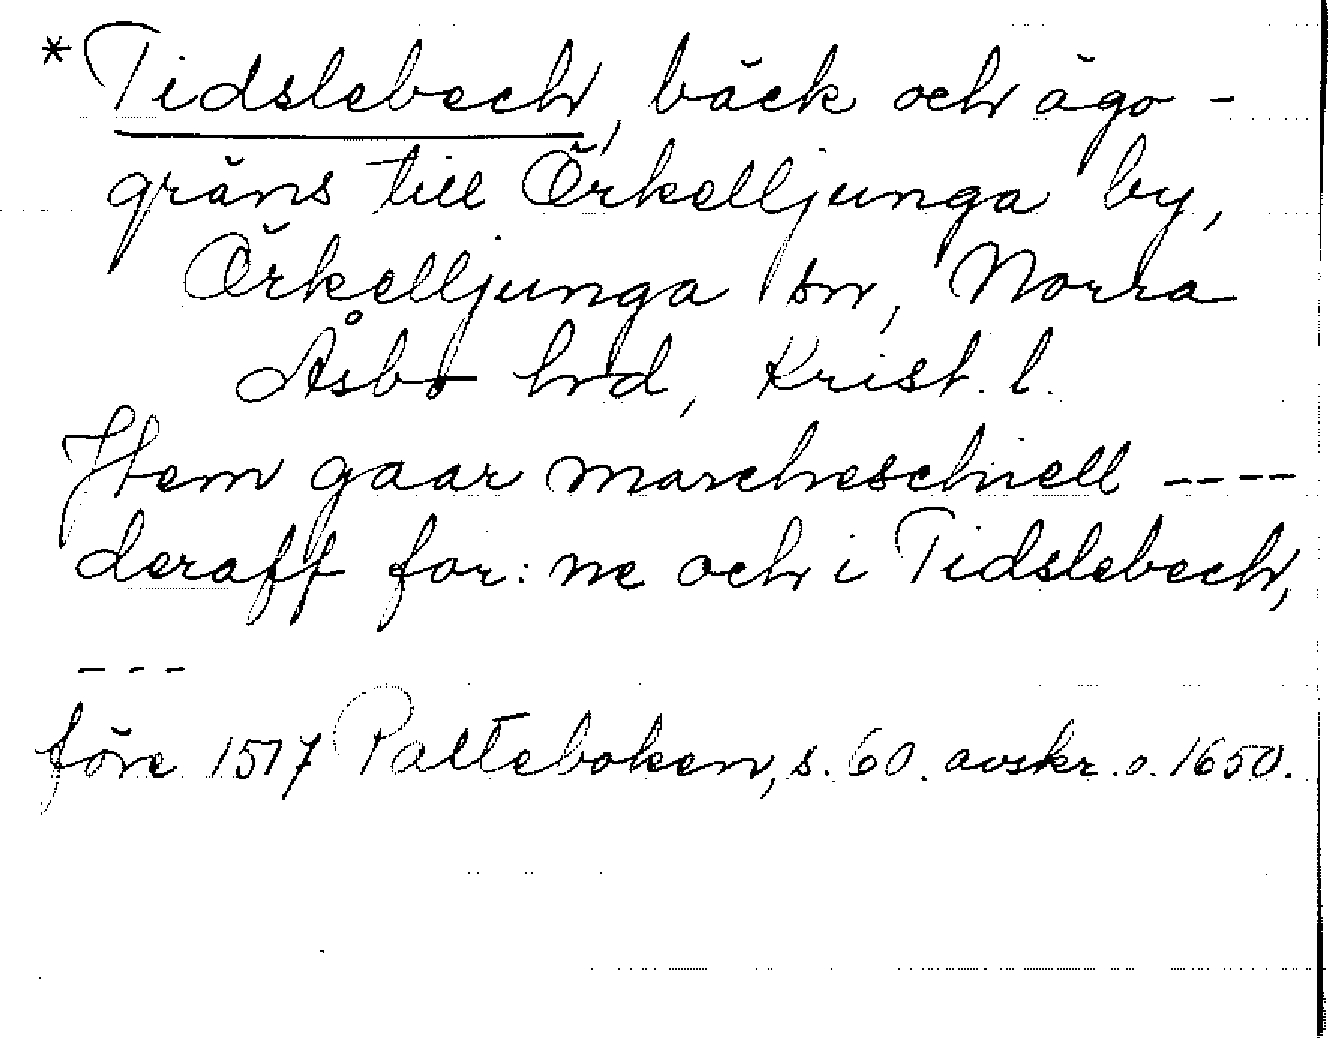 *Tidslebech, bäck och ägo-
gräns till Örkelljunga by,
Örkelljunga sn, Norra
Åsbo hrd, Krist. l.
Item gaar marcheschiell ----
deraff for: ne och i Tidslebech,
---
före 1517 Palteboken, s. 60. avskr. o. 1650.